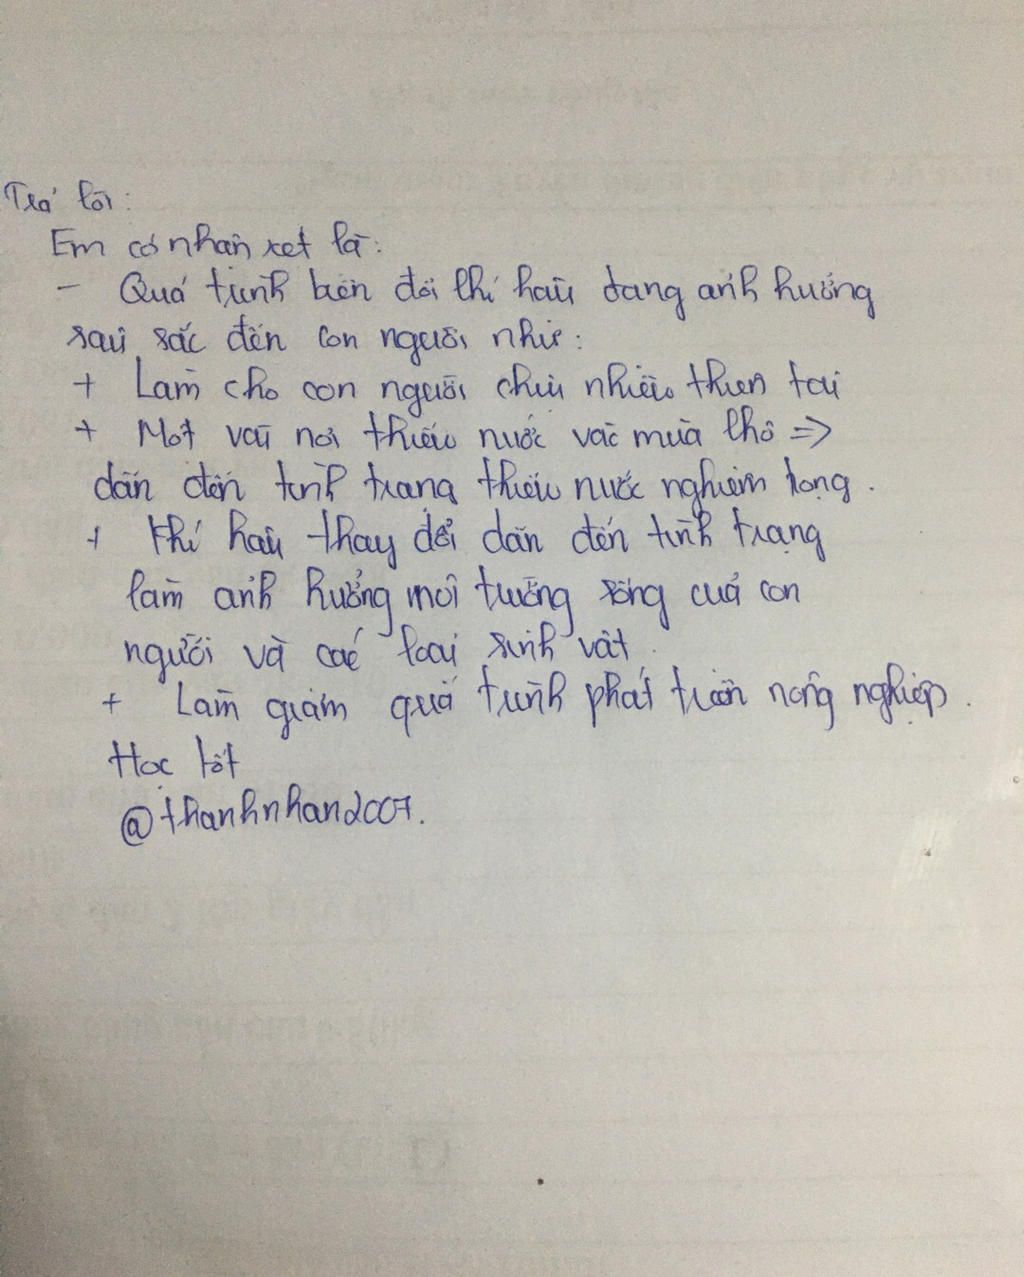 Trả lời:
Em có nhận xét là:
- Quá trình biến đổi khí hậu đang ảnh hưởng
sâu sắc đến con người như:
+ Làm cho con người chịu nhiều thiên tai
+ Một vài nơi thiếu nước vào mùa khô =>
dẫn đến tình trạng thiếu nước nghiêm trọng.
+ Khí hậu thay đổi dẫn đến tình trạng
làm ảnh hưởng môi trường sống của con
người và các loại sinh vật.
+ Làm giảm quá trình phát triển nông nghiệp.
Học tốt
@thanhnhan2007.